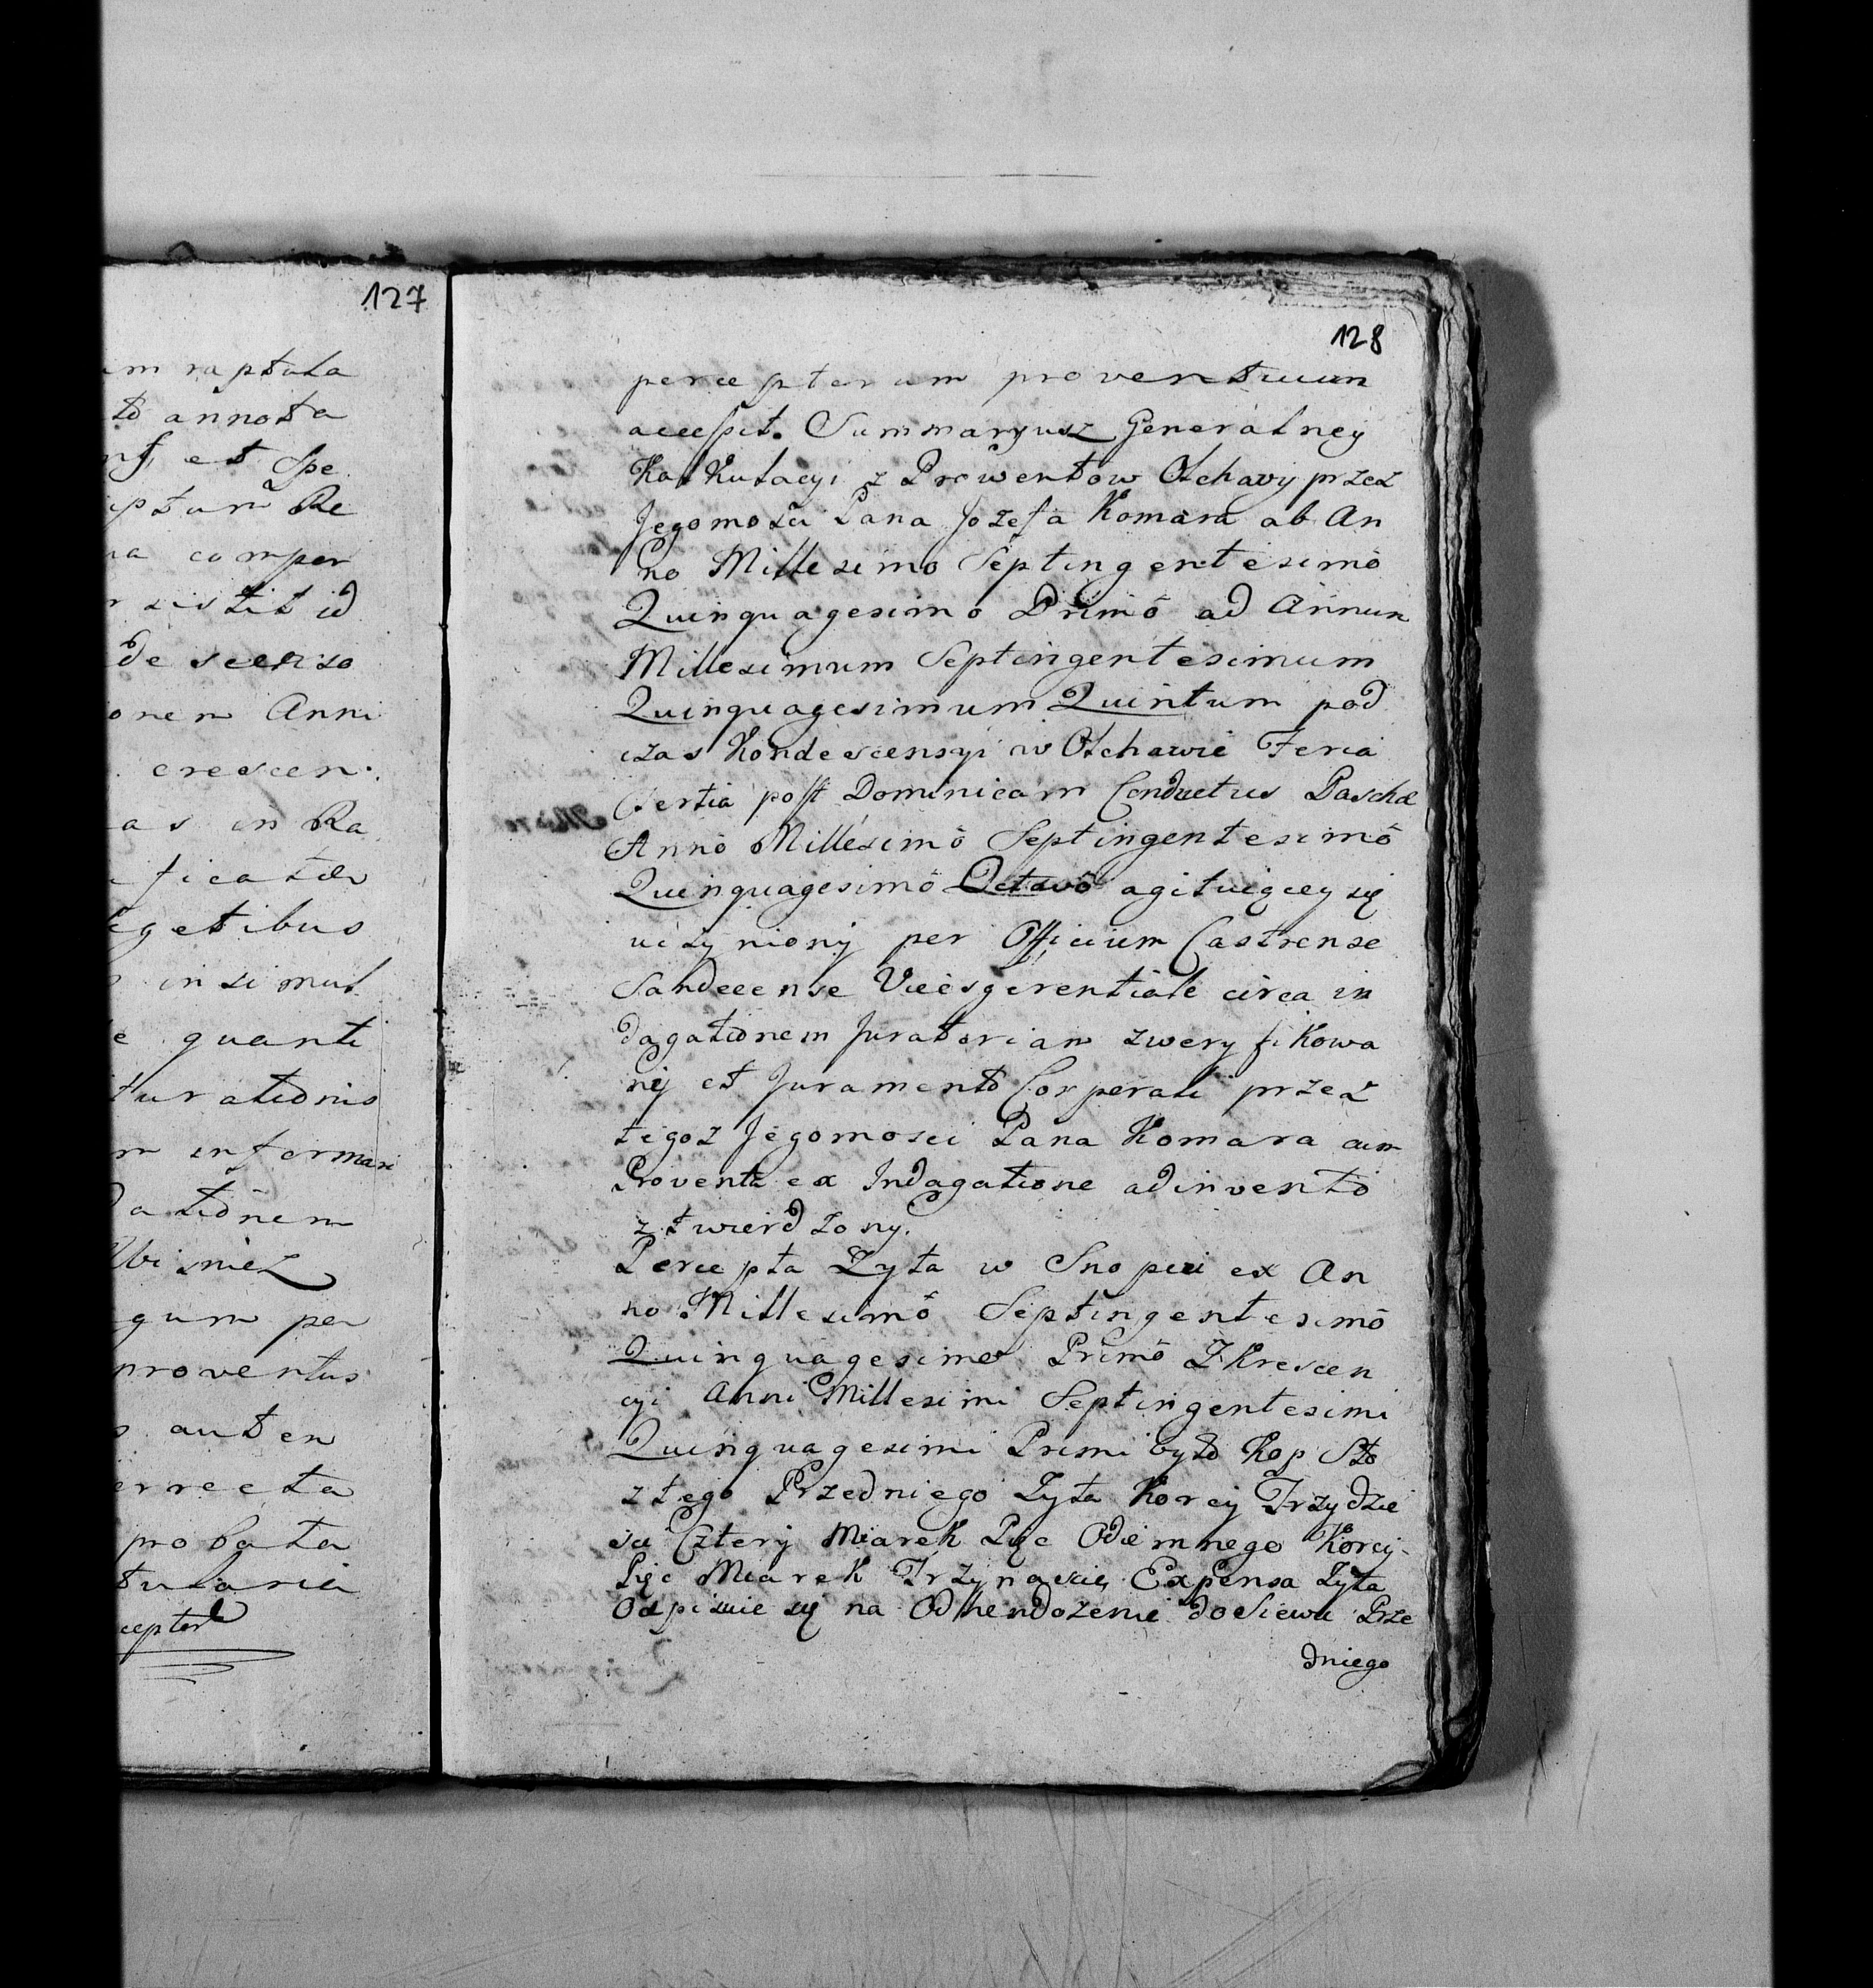 127
im raptula
to annota
nß et Spe
iptum Re
na comper
r sistit id
de scenso
onem Anni
crescen
as in Ra
ificatæ
egetibus
insimul
e quanti
turationis
m informari
dationem
Ubi niel
gum per
proventus
s auten
errecta
probata
tularia
ceptor
128
perceptorum proventuum
accessit. Summaryusz Generalney
Kalkulacyi z Prowentow Olchawy przez
Jegomosci Pana Jozefa Komara ab An
no Millesimo Septingentesimô
Quinquagesimo Primô ad Annum
Millesimum Septingentesimum
Quinquagesimum Quintum pod
czas Kondescensyi w Olchawie Feria
Tertia post Dominicam Conductus Paschæ
Annô Millesimô Septingentesimô
Quinquagesimô Octavô agituiącey się
uczyniony per Officium Castrense
Sandecense Vicesgerentiale circa in
dagationem Juratoriam zweryfikowa
ny et Juramentô Corporali przez
tegoz Jegomosci Pana Komara cum
Proventu ex Indagatione adinventô
ztwierdzony.
Percepta Zyta w Snopie ex An
no Millesimô Septingentesimô
Quinquagesimo Primô Z Krescen
cyi Anni Millesimi Septingentesimi
Quinquagesimi Primi było Kop Sto
z tego Przedniego Zyta Korcy Trzydzie
sci Cztery Miarek Pięc Odiemnego Korcy
Pięc Miarek Trzynascie, Expensa Zyta
Odpisuie się na do Siewu Prze
dniego